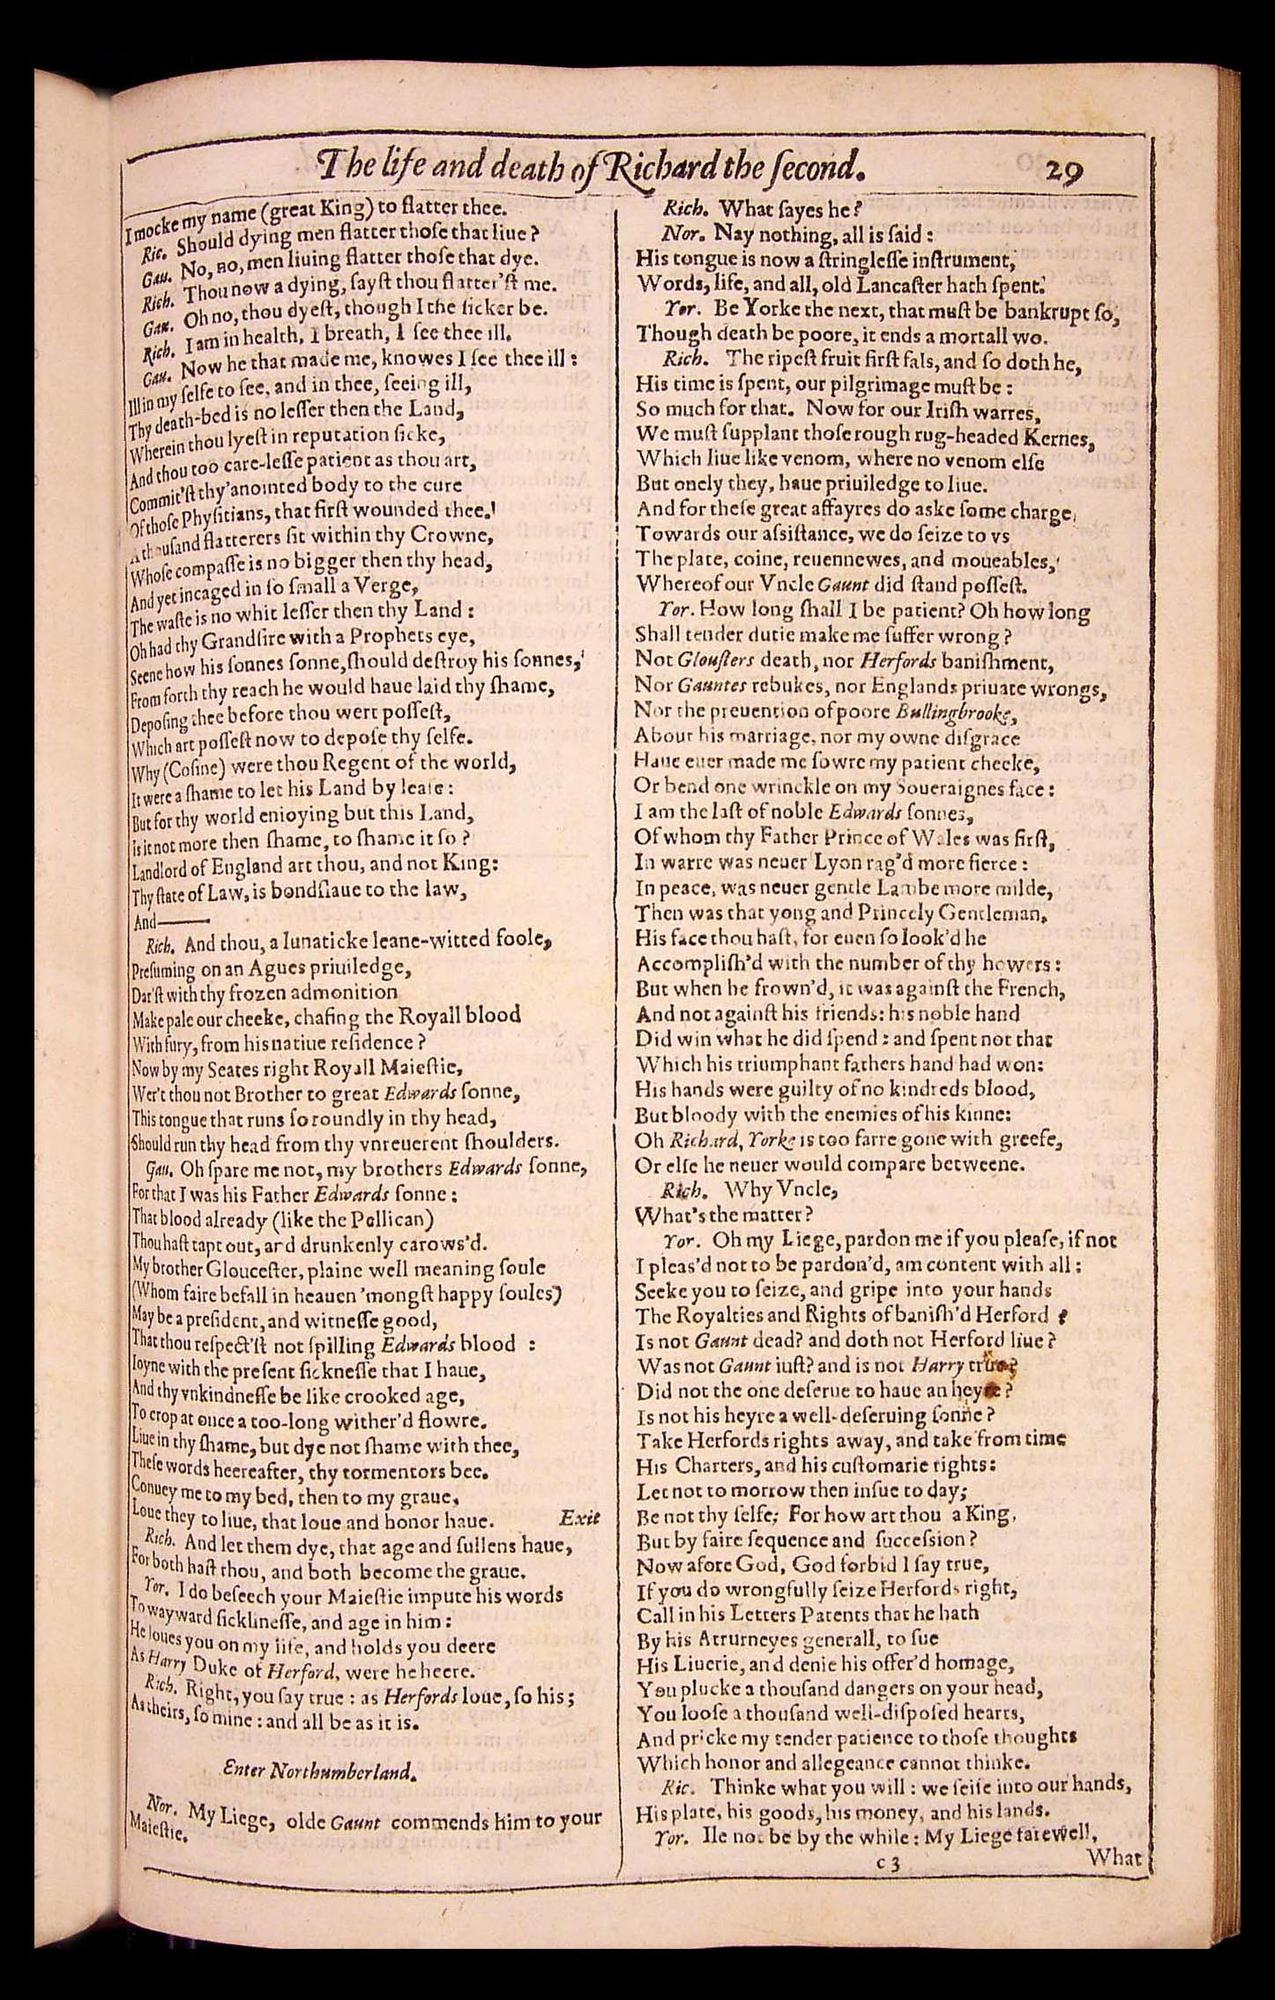 The life and death of Richard the ſecond. 29
I mocke my name (great King) to flatter thee.
Ric. Should dying men flatter thoſe that liue?
Gau. No, no, men liuing flatter thoſe that dye.
Rich. Thou now a dying, ſayſt thou flatter'ſt me.
Gau. Oh no, thou dyeſt, though I the ſicker be.
Rich. I am in health, I breath, I ſee thee ill.
Gau. Now he that made me, knowes I ſee thee ill:
Ill in my ſelfe to ſee, and in thee, ſeeing ill,
Thy death-bed is no leſſer then the Land,
Wherein thou lyeſt in reputation ſicke,
And thou too care-leſſe patient as thou art,
Commit'ſt thy'anointed body to the cure
Of thoſe Phyſitians, that firſt wounded thee.
A thouſand flatterers ſit within thy Crowne,
Whoſe compaſſe is no bigger then thy head,
And yet incaged in ſo ſmall a Verge,
The waſte is no whit leſſer then thy Land:
Oh had thy Grandſire with a Prophets eye,
Seene how his ſonnes ſonne, ſhould deſtroy his ſonnes,
From forth thy reach he would haue laid thy ſhame,
Depoſing thee before thou wert poſſeſt,
Which art poſſeſt now to depoſe thy ſelfe.
Why (Coſine) were thou Regent of the world,
It were a ſhame to let his Land by leaſe:
But for thy world enioying but this Land,
Is it not more then ſhame, to ſhame it ſo?
Landlord of England art thou, and not King:
Thy ſtate of Law, is bondſlaue to the law,
And———
Rich. And thou, a lunaticke leane-witted foole,
Preſuming on an Agues priuiledge,
Dar'ſt with thy frozen admonition
Make pale our cheeke, chafing the Royall blood
With fury, from his natiue reſidence?
Now by my Seates right Royall Maieſtie,
Wer't thou not Brother to great Edwards ſonne,
This tongue that runs ſo roundly in thy head,
Should run thy head from thy vnreuerent ſhoulders.
Gau. Oh ſpare me not, my brothers Edwards ſonne,
For that I was his Father Edwards ſonne:
That blood already (like the Pellican)
Thou haſt tapt out, and drunkenly carows'd.
My brother Glouceſter, plaine well meaning ſoule
(Whom faire befall in heauen 'mongſt happy ſoules)
May be a preſident, and witneſſe good,
That thou reſpect'ſt not ſpilling Edwards blood :
Ioyne with the preſent ſickneſſe that I haue,
And thy vnkindneſſe be like crooked age,
To crop at once a too-long wither'd flowre.
Liue in thy ſhame, but dye not ſhame with thee,
Theſe words heereafter, thy tormentors bee.
Conuey me to my bed, then to my graue,
Loue they to liue, that loue and honor haue. Exit
Rich. And let them dye, that age and ſullens haue,
For both haſt thou, and both become the graue.
Yor. I do beſeech your Maieſtie impute his words
To wayward ſicklineſſe, and age in him:
He loues you on my life, and holds you deere
As Harry Duke of Herford, were he heere.
Rich. Right, you ſay true: as Herfords loue, ſo his;
As theirs, ſo mine: and all be as it is.
Enter Northumberland.
Nor. My Liege, olde Gaunt commends him to your
Maieſtie.
Rich. What ſayes he?
Nor. Nay nothing, all is ſaid:
His tongue is now a ſtringleſſe inſtrument,
Words, life, and all, old Lancaſter hath ſpent.
Yor. Be Yorke the next, that muſt be bankrupt ſo,
Though death be poore, it ends a mortall wo.
Rich. The ripeſt fruit firſt fals, and ſo doth he,
His time is ſpent, our pilgrimage muſt be:
So much for that. Now for our Iriſh warres,
We muſt ſupplant thoſe rough rug-headed Kernes,
Which liue like venom, where no venom elſe
But onely they, haue priuiledge to liue.
And for theſe great affayres do aske ſome charge
Towards our aſsiſtance, we do ſeize to vs
The plate, coine, reuennewes, and moueables,
Whereof our Vncle Gaunt did ſtand poſſeſt.
Yor. How long ſhall I be patient? Oh how long
Shall tender dutie make me ſuffer wrong?
Not Glouſters death, nor Herfords baniſhment,
Nor Gauntes rebukes, nor Englands priuate wrongs,
Nor the preuention of poore Bullingbrooke,
About his marriage, nor my owne diſgrace
Haue euer made me ſowre my patient cheeke,
Or bend one wrinckle on my Soueraignes face:
I am the laſt of noble Edwards ſonnes,
Of whom thy Father Prince of Wales was firſt,
In warre was neuer Lyon rag'd more fierce:
In peace, was neuer gentle Lambe more milde,
Then was that yong and Princely Gentleman,
His face thou haſt, for euen ſo look'd he
Accompliſh'd with the number of thy howers:
But when he frown'd, it was againſt the French,
And not againſt his friends: his noble hand
Did win what he did ſpend: and ſpent not that
Which his triumphant fathers hand had won:
His hands were guilty of no kindreds blood,
But bloody with the enemies of his kinne:
Oh Richard, Yorke is too farre gone with greefe,
Or elſe he neuer would compare betweene.
Rich. Why Vncle,
What's the matter?
Yor. Oh my Liege, pardon me if you pleaſe, if not
I pleas'd not to be pardon'd, am content with all:
Seeke you to ſeize, and gripe into your hands
The Royalties and Rights of baniſh'd Herford ?
Is not Gaunt dead? and doth not Herford liue?
Was not Gaunt iuſt? and is not Harry true?
Did not the one deſerue to haue an heyre?
Is not his heyre a well-deſeruing ſonne?
Take Herfords rights away, and take from time
His Charters, and his cuſtomarie rights:
Let not to morrow then inſue to day;
Be not thy ſelfe: For how art thou a King,
But by faire ſequence and ſucceſsion?
Now afore God, God forbid I ſay true,
If you do wrongfully ſeize Herfords right,
Call in his Letters Patents that he hath
By his Atrurneyes generall, to ſue
His Liuerie, and denie his offer'd homage,
You plucke a thouſand dangers on your head,
You looſe a thouſand well-diſpoſed hearts,
And pricke my tender patience to thoſe thoughts
Which honor and allegeance cannot thinke.
Ric. Thinke what you will: we ſeiſe into our hands,
His plate, his goods, his money, and his lands.
Yor. Ile not be by the while: My Liege farewell,
c 3 What